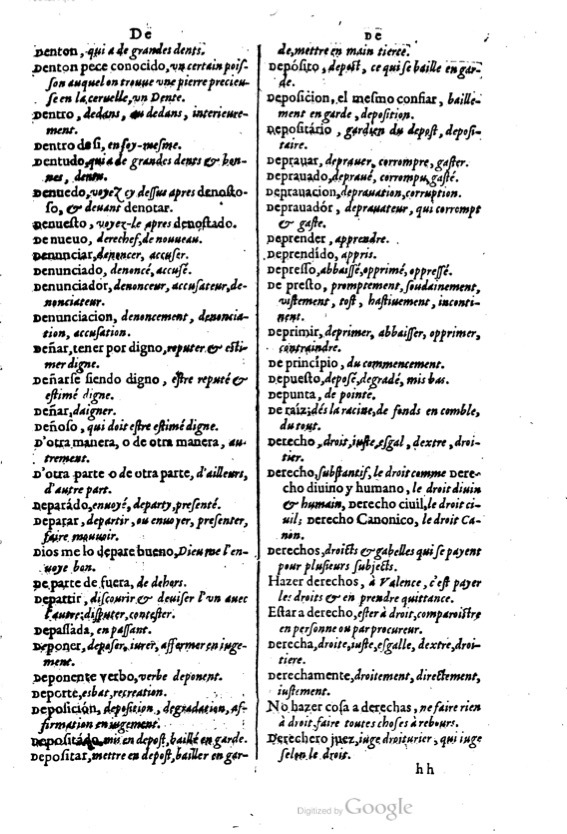 De
Denton, qui a de grandes dents.
Denton pece conocido, vn certain pois-
son auquel on trouue une pierre precieu-
se en la ceruelle, vn Dente.
Dentro, dedans, au dedans, interieure-
ment.
Dentro de si, en soy-mesme.
Dentudo, qui a de grandes dents & bon-
nes, dentu.
Denuedo, voyez cy dessus apres denosto-
so, & deuant denotar.
Denuesto, voyez-le apres denostado.
De nueuo, derechef, de nouueau.
Denunciar, denoncer, accuser.
Denunciado, denoncé, accusé.
Denunciador, denonceur, accusateur, de-
nonciateur.
Denunciacion, denoncement, denoncia-
tion, accusation.
Deñar, tener por digno, reputer & esti-
mer digne.
Deñarse siendo digno, estre reputé &
estimé digne.
Deñar, daigner.
Deñoso, qui doit estre estimé digne.
D'otra manera, o de otra manera, au-
trement.
D'otra parte o de otra parte, d'ailleurs,
d'autre part.
Deparádo, enuoyé, departy, presenté.
Deparar, departir, ou enuoyer, presenter,
faire mouuoir.
Dios me lo depare bueno, Dieu me l'en-
uoye bon.
De parte de fuera, de dehors.
Departir, discourir & deuiser l'vn auec
l'autre, disputer, contester.
Depassada, en passant.
Deponer, deposer, iurer, affermer en iuge-
ment.
Deponente verbo, verbe deponent.
Deporte, esbat, recreation.
Deposición, deposition, degradation, af-
firmation en iugement.
Depositádo, mis en depost, baillé en garde.
Depositar, mettre en depost, bailler en gar-
De
de, mettre en main tierce.
Depósito, depost, ce qui se baille en gar-
de.
Deposicion, el mesmo confiar, baille-
ment en garde, deposition.
Depositário, gardien du depost, deposi-
taire.
Deprauar, deprauer, corrompre, gaster.
Deprauado, deprauê, corrompu, gasté.
Deprauacion, deprauation, corruption.
Deprauadór, deprauateur, qui corrompt
& gaste.
Deprender, apprendre.
Deprendído, appris.
Depresso, abbaissé, opprimé, oppressé.
De presto, promptement, soudainement,
vistement, tost, hastiuement, inconti-
nent.
Deprimir, deprimer, abbaisser, opprimer,
contraindre.
De principio, du commencement.
Depuesto, deposé, degradé, mis bas.
Depunta, de pointe.
De raíz, dés la racine, de fonds en comble,
du tout.
Derecho, droit, iuste, esgal, dextre, droi-
tier.
Derecho, substantif, le droit comme Dere-
cho diuino y humano, le droit diuin
& humain, Derecho ciuil, le droit ci-
uil; Derecho Canonico, le droit Ca-
non.
Derechos, droicts & gabelles qui se payent
pour plusieurs subjects.
Hazer derechos, à Valence, c'est payer
les droits & en prendre quittance.
Estar a derecho, ester à droit, comparoistre
en personne ou par procureur.
Derecha, droite, iuste, esgalle, dextre, droi-
tiere.
Derechamente, droitement, directement,
iustement.
No hazer cosa a derechas, ne faire rien
à droit, faire toutes choses à rebours.
Derechero juez, iuge droiturier, qui iuge
selon le droit.
hh
Digitized by Google